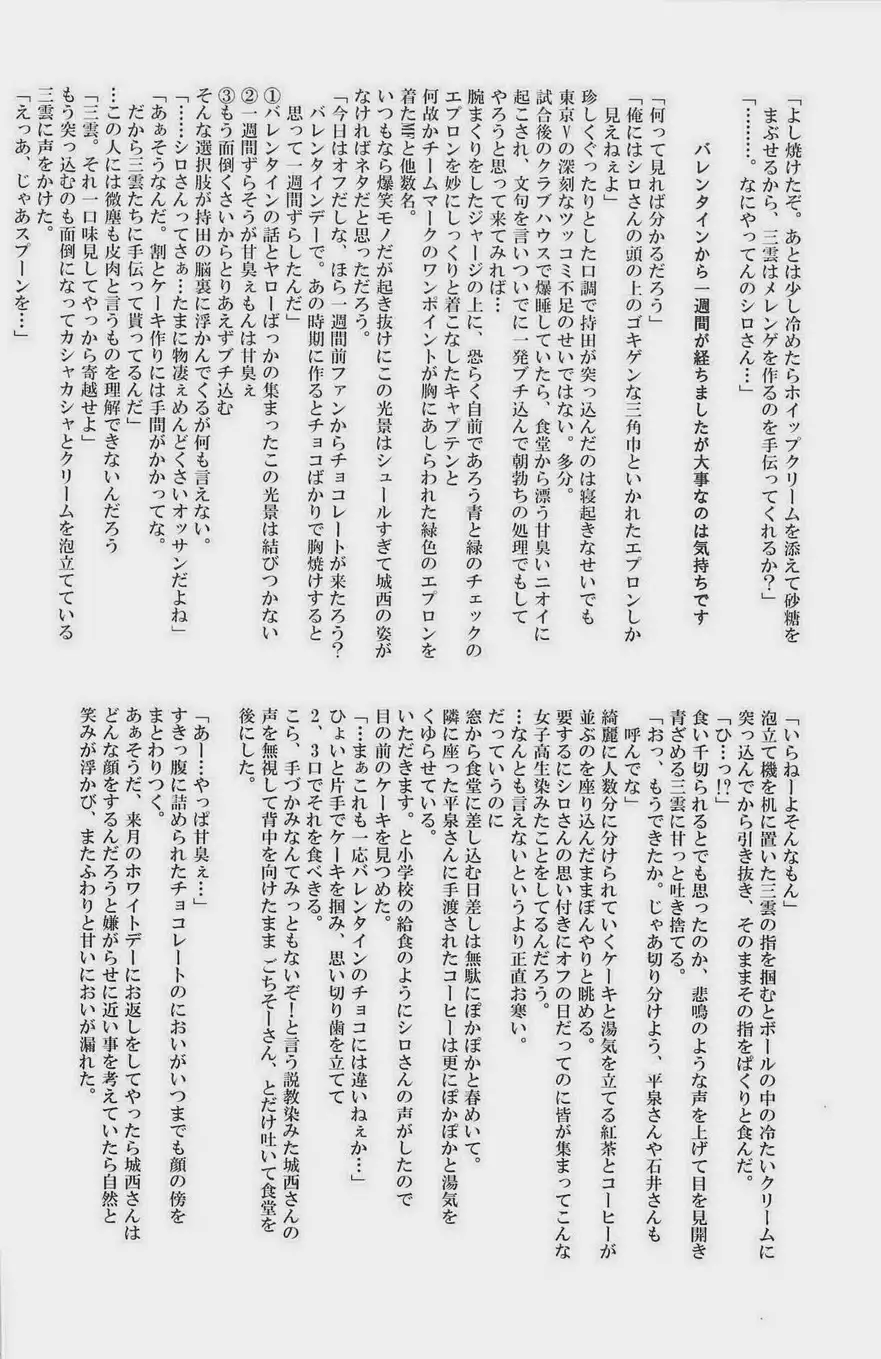 「よし焼けたぞ。あとは少し冷めたらホイップクリームを添えて砂糖を
まぶせるから、三雲はメレンゲを作るのを手伝ってくれるか？」
「………。なにやってんのシロさん…」
バレンタインから一週間が経ちましたが大事なのは気持ちです
「何って見れば分かるだろう」
「俺にはシロさんの頭の上のゴキゲンな三角巾といかれたエプロンしか
見えねぇよ」
珍しくぐったりとした口調で持田が突っ込んだのは寝起きなせいでも
東京Vの深刻なツッコミ不足のせいではない。多分。
試合後のクラブハウスで爆睡していたら、食堂から漂う甘臭いニオイに
起こされ、文句を言いついでに一発ブチ込んで朝勃ちの処理でもして
やろうと思って来てみれば…
腕まくりをしたジャージの上に、恐らく自前であろう青と緑のチェックの
エプロンを妙にしっくりと着こなしたキャプテンと
何故かチームマークのワンポイントが胸にあしらわれた緑色のエプロンを
着たMFと他数名。
いつもなら爆笑モノだが起き抜けにこの光景はシュールすぎて城西の姿が
なければネタだと思っただろう。
「今日はオフだしな、ほら一週間前ファンからチョコレートが来たろう？
バレンタインデーで。あの時期に作るとチョコばかりで胸焼けすると
思って一週間ずらしたんだ」
①バレンタインの話とヤローばっかの集まったこの光景は結びつかない
②一週間ずらそうが甘臭ぇもんは甘臭ぇ
③もう面倒くさいからとりあえずブチ込む
そんな選択肢が持田の脳裏に浮かんでくるが何も言えない。
「……シロさんってさぁ…たまに物凄ぇめんどくさいオッサンだよね」
「あぁそうなんだ。割とケーキ作りには手間がかかってな。
だから三雲たちに手伝って貰ってるんだ」
…この人には微塵も皮肉と言うものを理解できないんだろう
「三雲。それ一口味見してやっから寄越せよ」
もう突っ込むのも面倒になってカシャカシャとクリームを泡立てている
三雲に声をかけた。
「えっあ、じゃあスプーンを…」
「いらねーよそんなもん」
泡立て機を机に置いた三雲の指を掴むとボールの中の冷たいクリームに
突っ込んでから引き抜き、そのままその指をぱくりと食んだ。
「ひ…っ!?」
食い千切られるとでも思ったのか、悲鳴のような声を上げて目を見開き
青ざめる三雲に甘っと吐き捨てる。
「おっ、もうできたか。じゃあ切り分けよう、平泉さんや石井さんも
呼んでな」
綺麗に人数分に分けられていくケーキと湯気を立てる紅茶とコーヒーが
並ぶのを座り込んだままぼんやりと眺める。
要するにシロさんの思い付きにオフの日だってのに皆が集まってこんな
女子高生染みたことをしてるんだろう。
…なんとも言えないというより正直お寒い。
だっていうのに
窓から食堂に差し込む日差しは無駄にぽかぽかと春めいて。
隣に座った平泉さんに手渡されたコーヒーは更にぽかぽかと湯気を
くゆらせている。
いただきます。と小学校の給食のようにシロさんの声がしたので
目の前のケーキを見つめた。
「…まぁこれも一応バレンタインのチョコには違いねぇか…」
ひょいと片手でケーキを掴み、思い切り歯を立てて
2、3口でそれを食べきる。
こら、手づかみなんてみっともないぞ！と言う説教染みた城西さんの
声を無視して背中を向けたまま ごちそーさん、とだけ吐いて食堂を
後にした。
「あー…やっぱ甘臭ぇ…」
すきっ腹に詰められたチョコレートのにおいがいつまでも顔の傍を
まとわりつく。
あぁそうだ、来月のホワイトデーにお返しをしてやったら城西さんは
どんな顔をするんだろうと嫌がらせに近い事を考えていたら自然と
笑みが浮かび、またふわりと甘いにおいが漏れた。